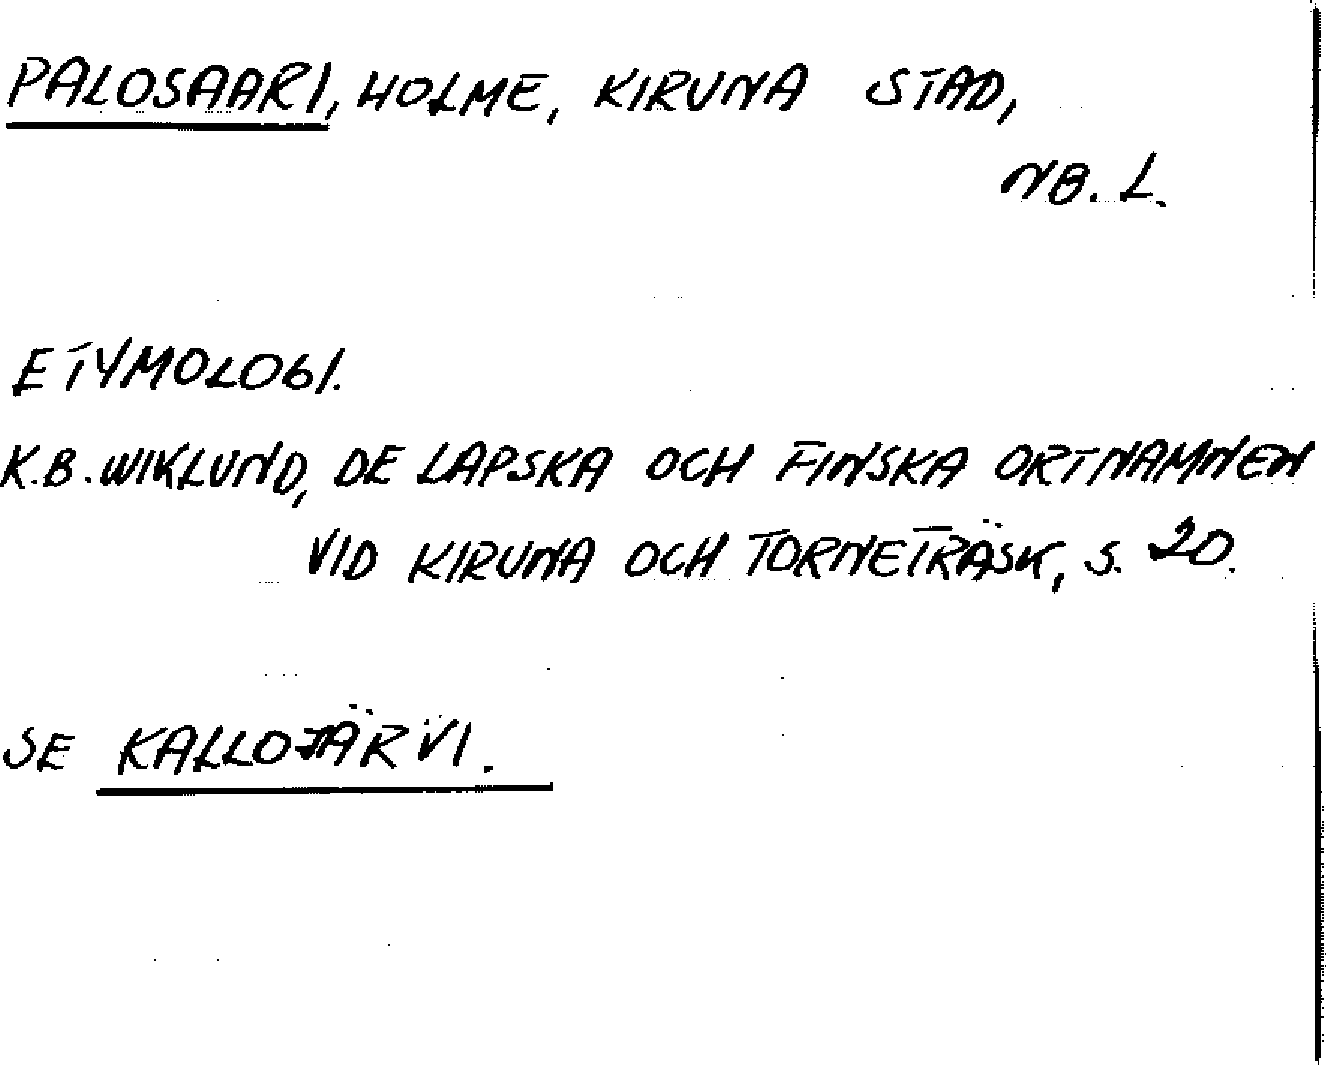 PALOSAARI, HOLME, KIRUNA STAD,
NB. L.
ETYMOLOGI.
K.B. WIKLUND, DE LAPSKA OCH FINSKA ORTNAMNEN
VID KIRUNA OCH TORNETRÄSK, S. 20.
SE KALLOJÄRVI.